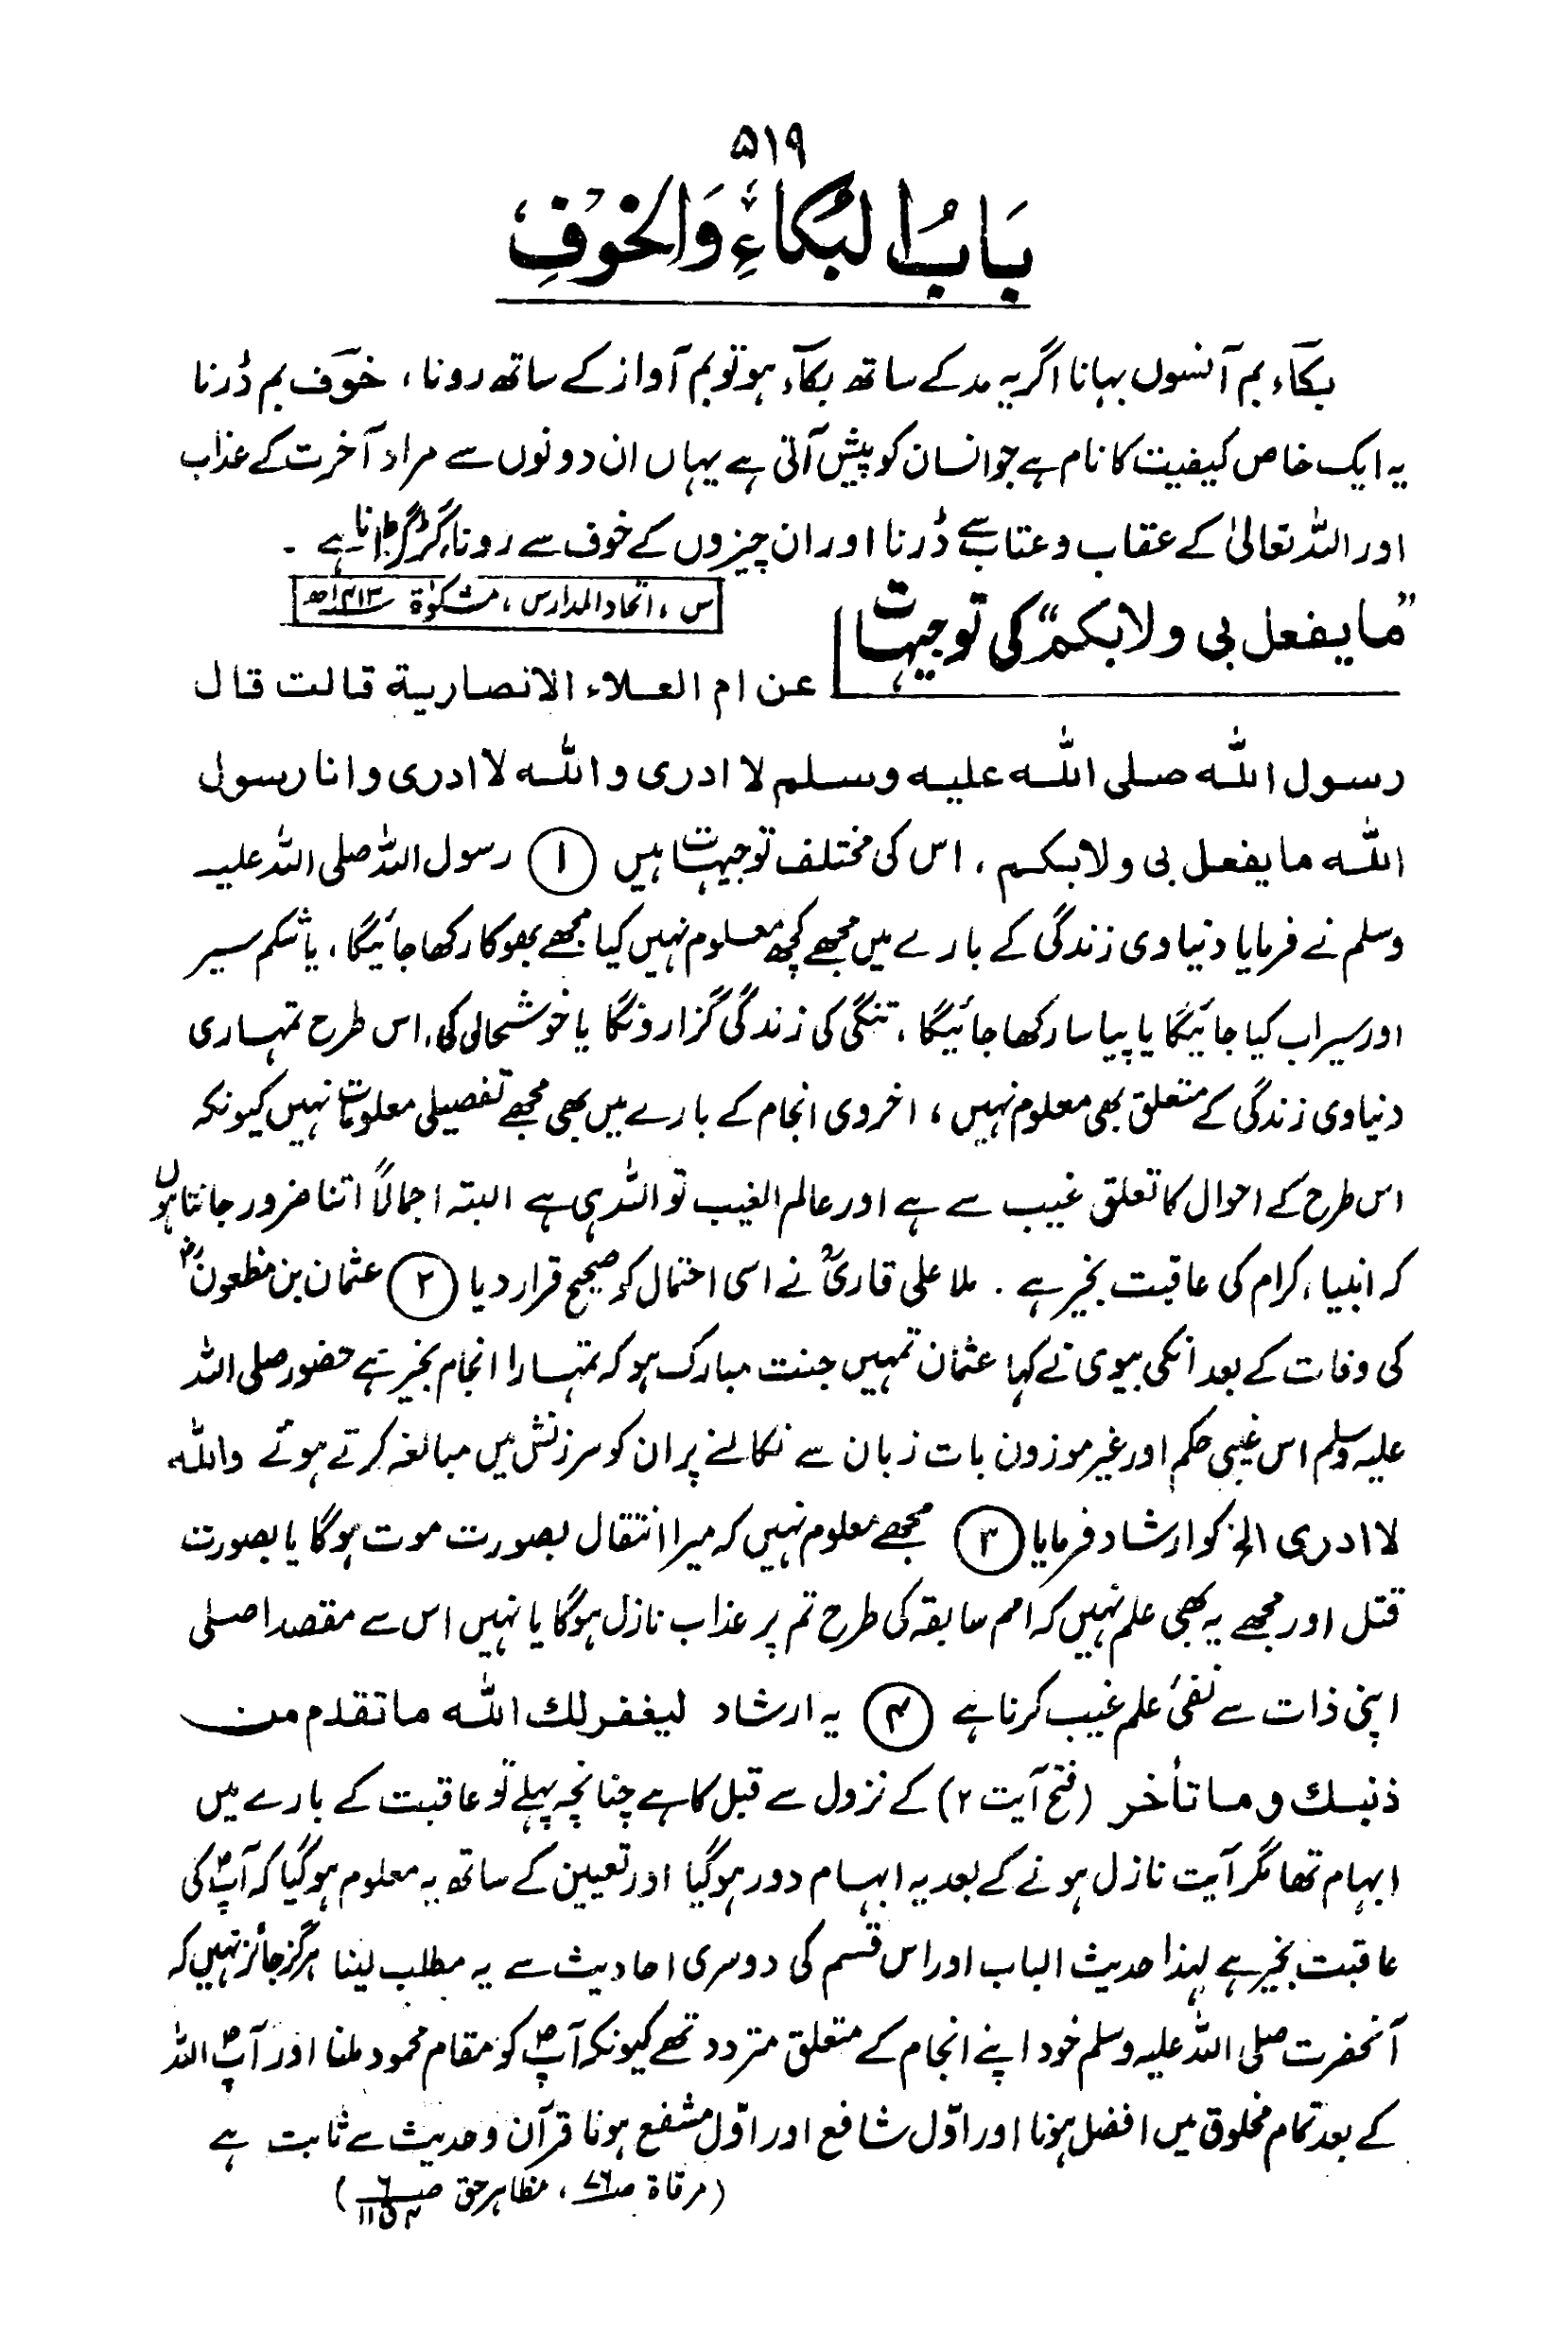 ۵۱۹
بَابُ الْبُكَاءِ وَالْخَوْفِ
بکآء بم آنسوں بہانا اگر یہ مد کے ساتھ بکآء ہو تو بم آواز کے ساتھ رونا ، خوف بم ڈرنا
یہ ایک خاص کیفیت کا نام ہے جو انسان کو پیش آتی ہے یہاں ان دونوں سے مراد آخرت کے عذاب
اور اللہ تعالیٰ کے عقاب و عتاب سے ڈرنا اور ان چیزوں کے خوف سے رونا، گڑگڑانا ہے ۔
”ما یفعل بی ولا بکم“ کی توجیہات
س ، اتحاد المدارس ، مشکوٰۃ ۱۴۱۳ھ
عن ام العلاء الانصاریة قالت قال
رسول اللّٰه صلی اللّٰه علیه وسلم لا ادری واللّٰه لا ادری وانا رسول
اللّٰه ما یفعل بی ولا بکم ، اس کی مختلف توجیہات ہیں ① رسول اللہ صلی اللہ علیہ
وسلم نے فرمایا دنیاوی زندگی کے بارے میں مجھے کچھ معلوم نہیں کیا مجھے بھوکا رکھا جائیگا ، یا شکم سیر
اور سیراب کیا جائیگا یا پیاسا رکھا جائیگا ، تنگی کی زندگی گزارونگا یا خوشحالی کی، اس طرح تمہاری
دنیاوی زندگی کے متعلق بھی معلوم نہیں ، اخروی انجام کے بارے میں بھی مجھے تفصیلی معلومات نہیں کیونکہ
اس طرح کے احوال کا تعلق غیب سے ہے اور عالم الغیب تو اللہ ہی ہے البتہ اجمالاً اتنا ضرور جانتا ہوں
کہ انبیاء کرام کی عاقبت بخیر ہے ۔ ملا علی قاریؒ نے اسی احتمال کو صحیح قرار دیا ② عثمان بن مظعونؓ
کی وفات کے بعد انکی بیوی نے کہا عثمان تمہیں جنت مبارک ہو کہ تمہارا انجام بخیر ہے حضور صلی اللہ
علیہ وسلم اس غیبی حکم اور غیر موزون بات زبان سے نکالنے پر ان کو سرزنش میں مبالغہ کرتے ہوئے واللّٰه
لا ادری الخ کو ارشاد فرمایا ③ مجھے معلوم نہیں کہ میرا انتقال بصورت موت ہوگا یا بصورت
قتل اور مجھے یہ بھی علم نہیں کہ امم سابقہ کی طرح تم پر عذاب نازل ہوگا یا نہیں اس سے مقصد اصلی
اپنی ذات سے نفیٔ علم غیب کرنا ہے ④ یہ ارشاد لیغفر لك اللّٰه ما تقدم من
ذنبك وما تأخر (فتح آیت ۲) کے نزول سے قبل کا ہے چنانچہ پہلے تو عاقبت کے بارے میں
ابہام تھا مگر آیت نازل ہونے کے بعد یہ ابہام دور ہوگیا اور تعیین کے ساتھ یہ معلوم ہوگیا کہ آپؐ کی
عاقبت بخیر ہے لہذا حدیث الباب اور اس قسم کی دوسری احادیث سے یہ مطلب لینا ہرگز جائز نہیں کہ
آنحضرت صلی اللہ علیہ وسلم خود اپنے انجام کے متعلق متردد تھے کیونکہ آپؐ کو مقام محمود ملنا اور آپؐ اللہ
کے بعد تمام مخلوق میں افضل ہونا اور اوّل شافع اور اوّل مشفع ہونا قرآن و حدیث سے ثابت ہے
(مرقاة ، مظاہر حق)